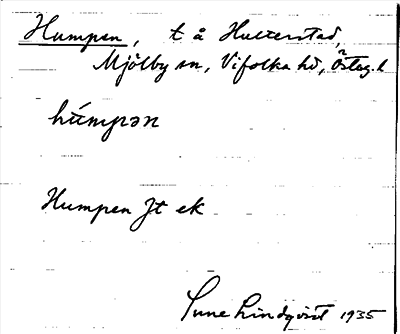 Humpen, t å Hulterstad,
Mjölby sn, Vifolka hd, Östug. l
húmpən
Humpen Jt ek
Sune Lindqvist 1935